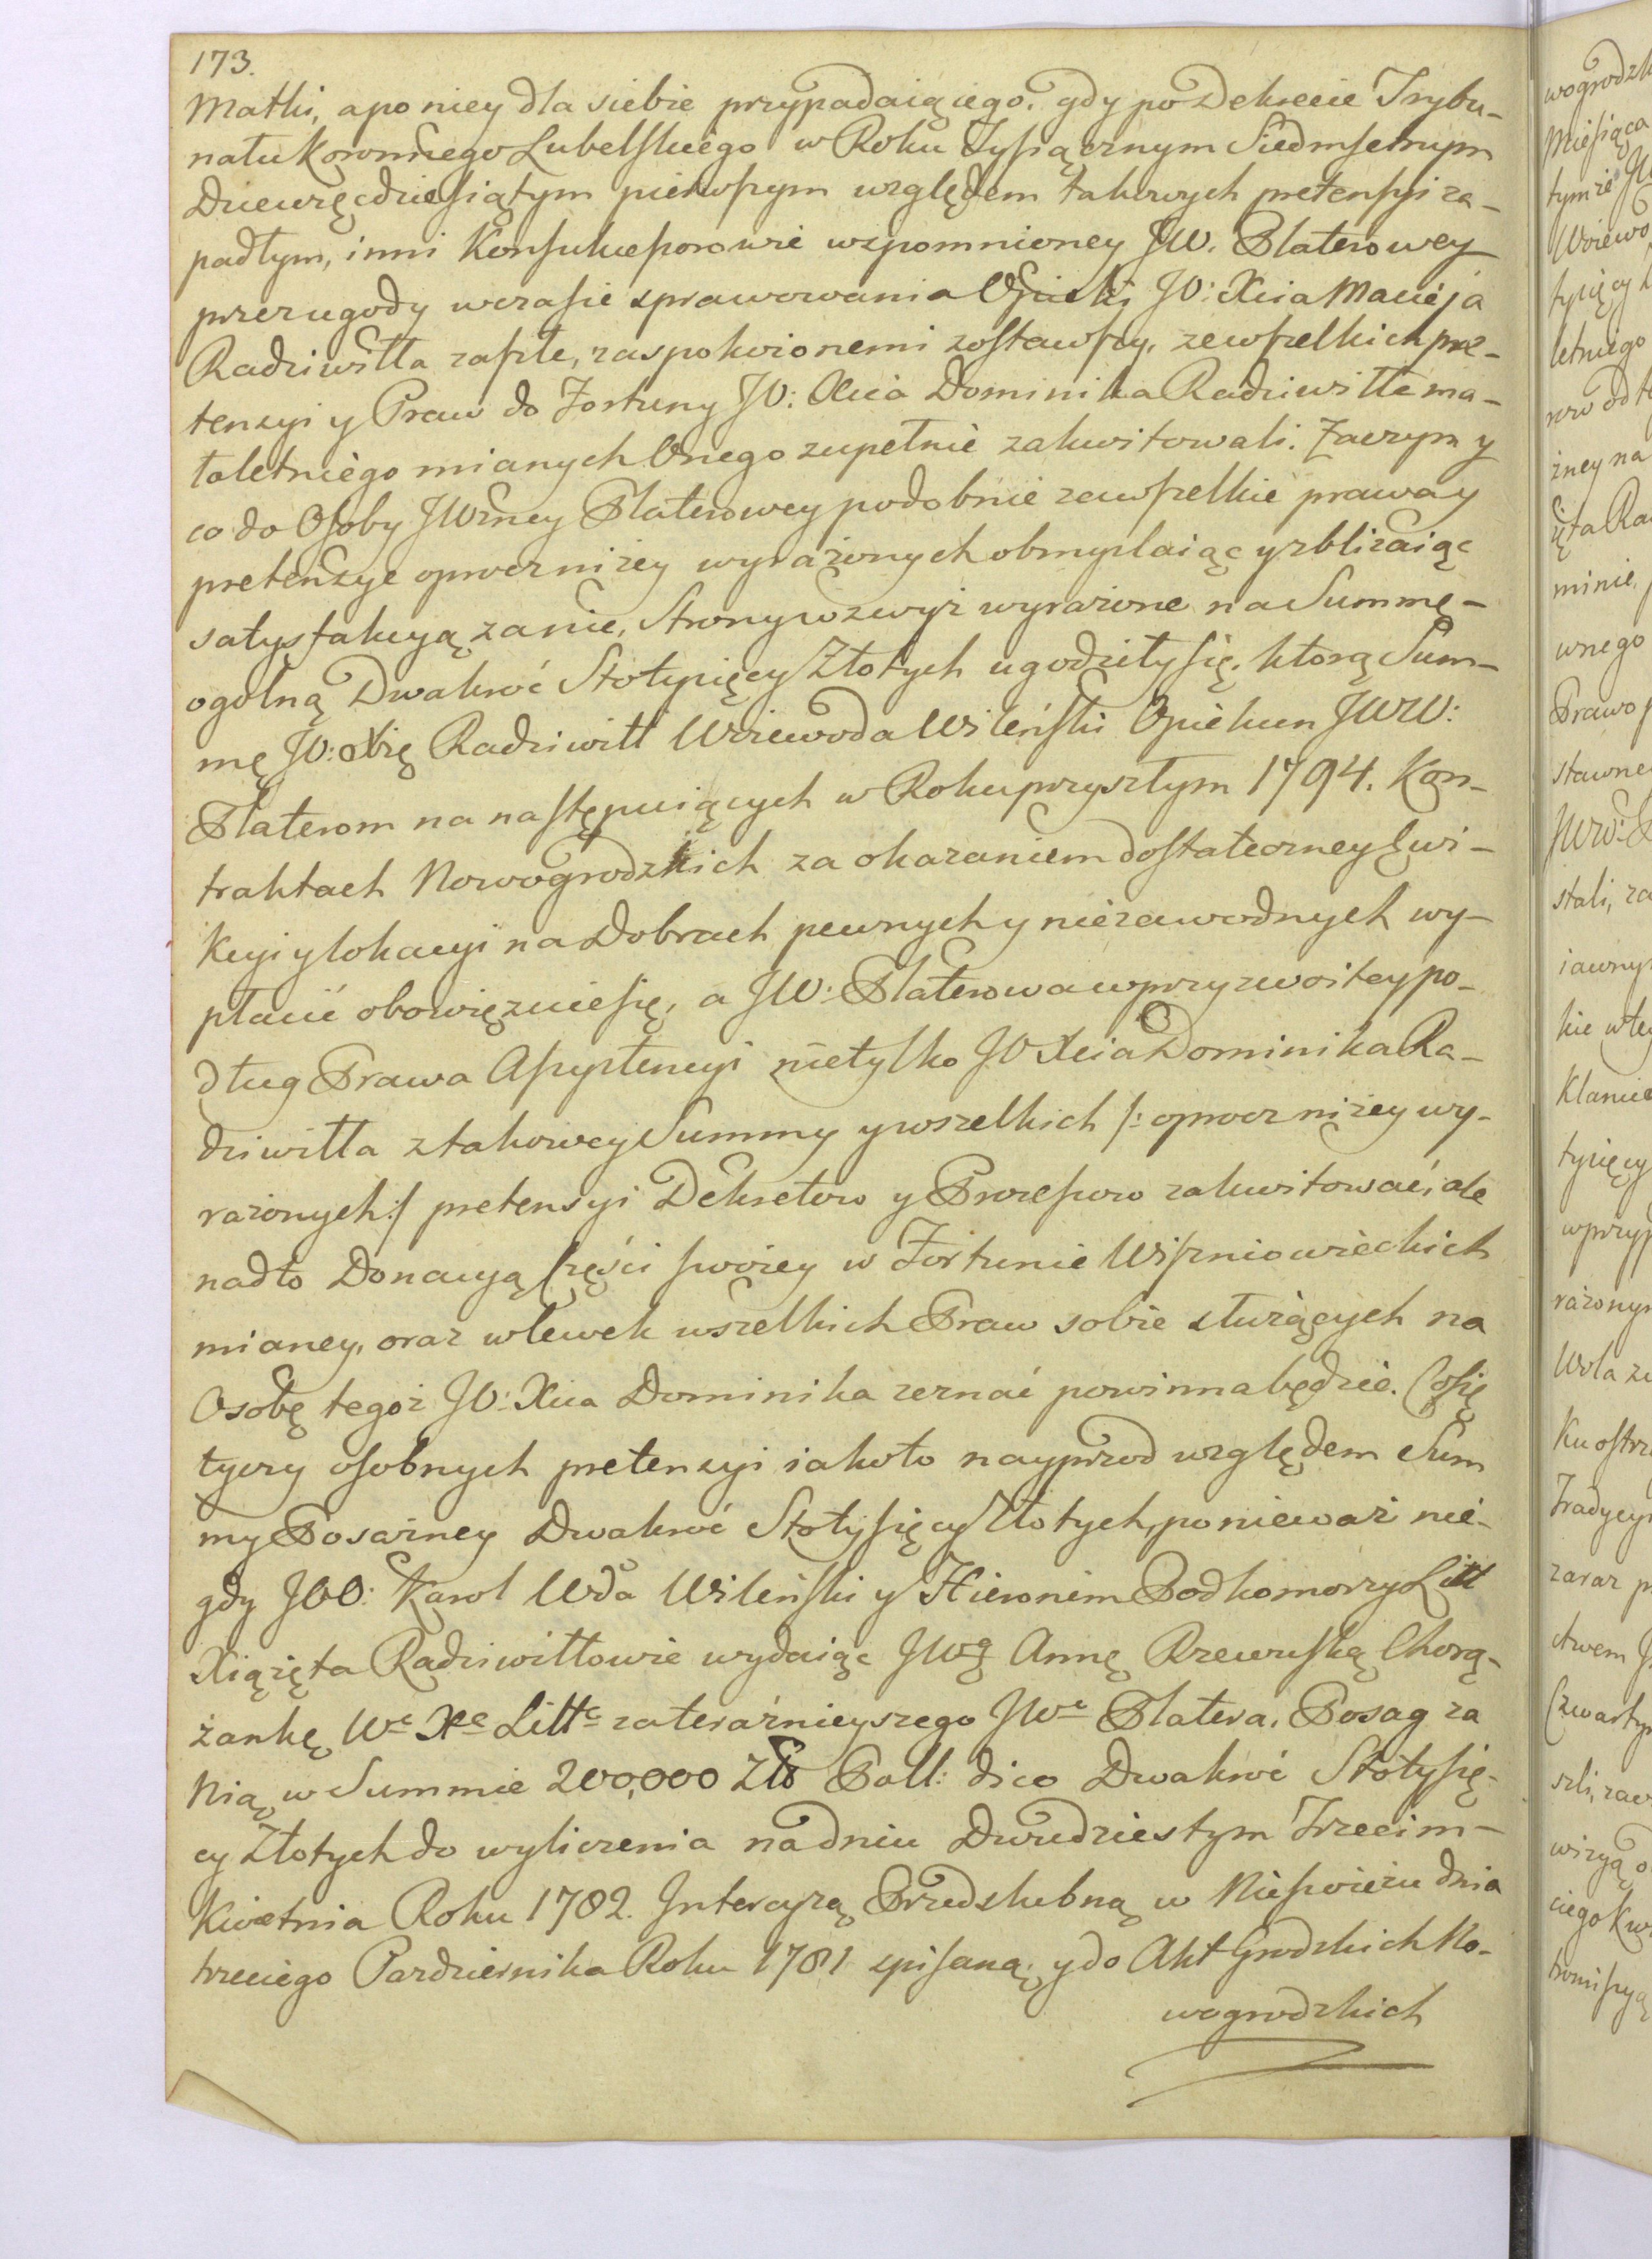 173.
Matki, a po niey dla siebie przypadaiącego. gdy po Dekrecie Trybu-
nału Koronnego Lubelskiego w Roku Tysiącznym Siedmsetnym
Dziewięćdziesiątym pierwszym względem takowych pretensyi za-
padłym, inni Konsukcessorowie wspomnioney JW. Platerowey
przez ugody w czasie sprawowania Opieki JO: Xcia Macieja
Radziwiłła zaszłe, zaspokoionemi zostawszy, ze wszelkich pre-
tensyi y Praw do Fortuny JO: Xcia Dominika Radziwiłła ma-
łoletniego mianych Onego zupełnie zakwitowali. Zaczym y
co do Osoby JWżney Platerowey podobnie ze wszelkie prawa y
pretensye oprocz niżey wyrażonych obmyslaiąc y zbliżaiąc
satysfakcyą za nie, Strony wzwyż wyrażone na Summę
ogolną Dwakroć Stotysięcy Złotych ugodziły się, ktorą Sum-
mę JO: Xżę Radziwiłł Woiewoda Wileński Opiekun JWW:
Platerom na następuiących w Roku przyszłym 1794. Kon-
traktach Nowogrodzkich za okazaniem dostateczney Ewi-
kcyi y lokacyi na Dobrach pewnych y niezawodnych wy-
płacić obowięzuie się, a JW: Platerowa w przyzwoitey po-
dług Prawa Assystencyi nietylko JO Xcia Dominika Ra-
dziwiłła z takowey Summy y wszelkich /: oprocz niżey wy-
rażonych :/ pretensyi Dekretow y Procesow zakwitować, ale
nadto Donacyą Części swoiey w Fortunie Wiszniowieckich
mianey, oraz wlewek wszelkich Praw sobie służących na
Osobę tegoż JO: Xcia Dominika zeznać powinna będzie. Co się
tyczy osobnych pretensyi iakoto nayprzod względem Sum
my Posażney Dwakroć Stotysięcy Złotych, ponieważ nie-
gdy JOO: Karol Wda Wileński y Hieronim Podkomorzy Litt
Xiążęta Radziwiłłowie wydaiąc JWą Annę Rzewuską Chorą-
żankę We Xe Litte za teraźnieyszego JWe Platera, Posag za
Nią w Summie 200,000 Zło Poll: dico Dwakroć Stotysię-
cy Złotych do wyliczenia na dniu Dwudziestym Trzecim
Kwietnia Roku 1782. Intercyzą Przedslubną w Nieswieżu dnia
trzeciego Pazdziernika Roku 1781 spisaną, y do Akt Grodzkich No-
wogrodzkich